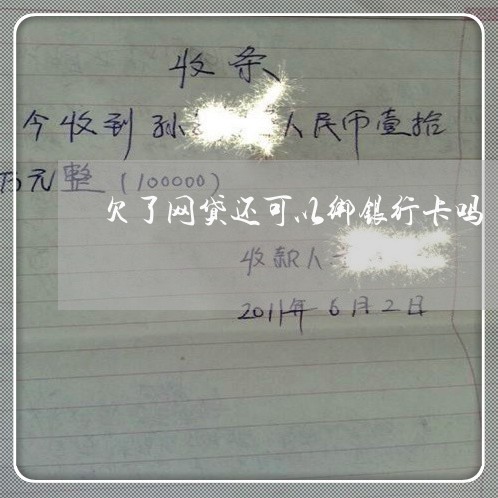 收条
今收到孙 人民币壹拾
万元整(100000)
欠了网贷还可以绑银行卡吗
收款人
2011年6月2日